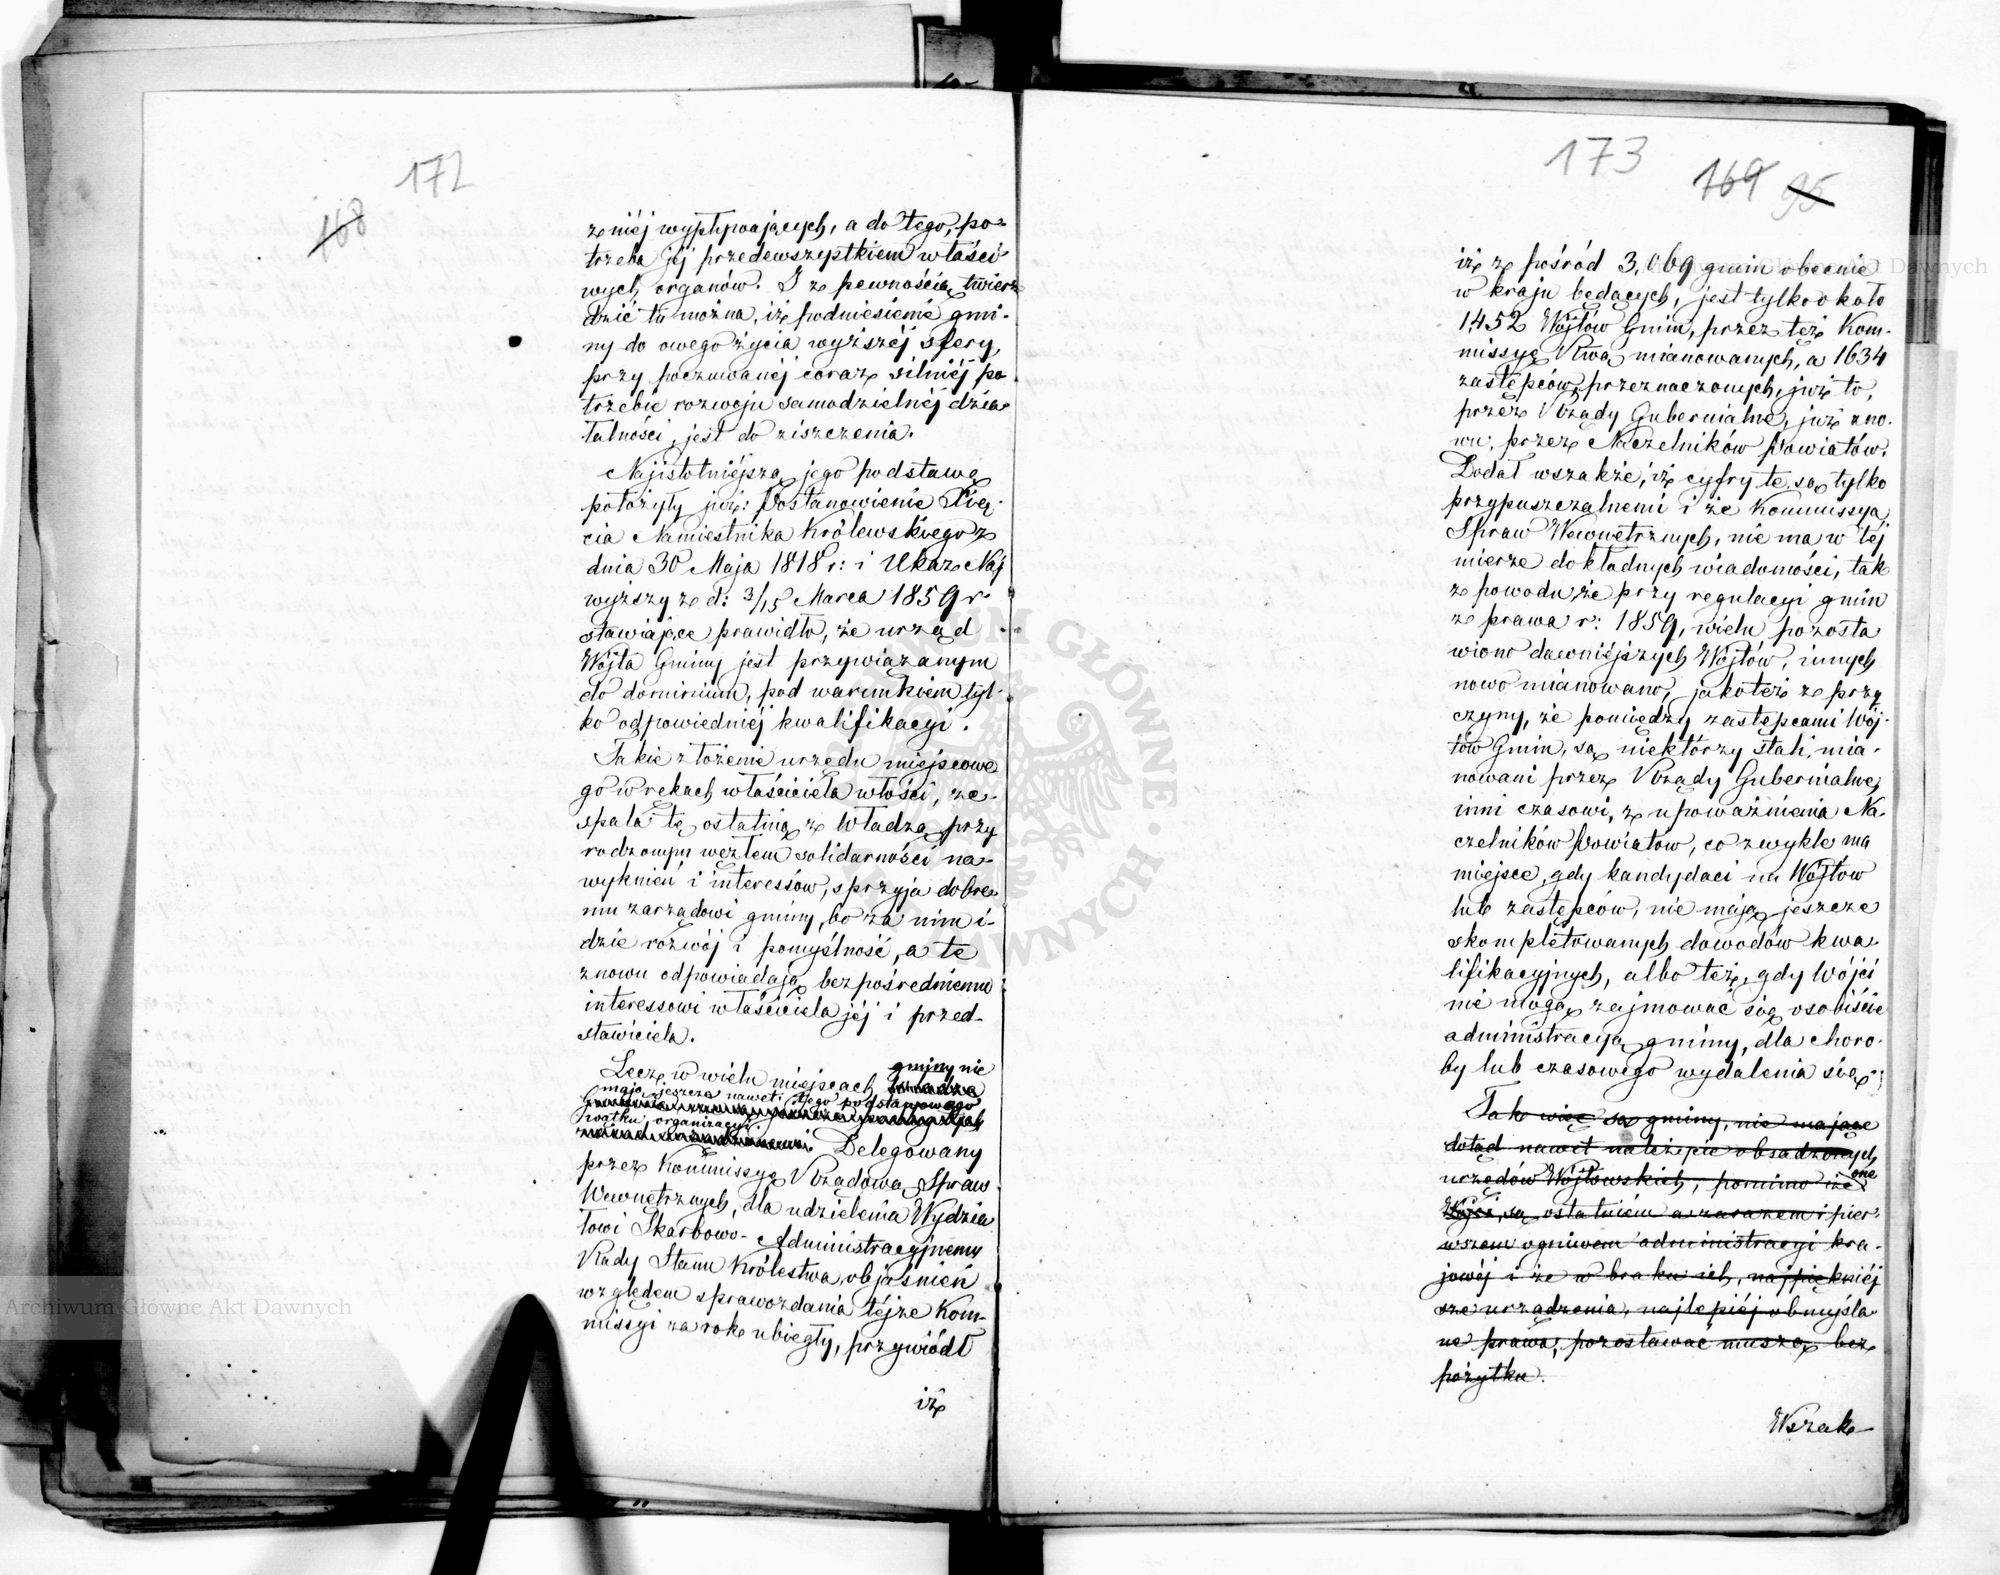 172
168
z niéj wypływających, a do tego, po-
trzeba jéj przedewszystkiem właści-
wych organów. I z pewnością twier-
dzić tu można, iż podniesienie gmi-
ny do owego życia wyższéj sfery,
przy poczuwanéj coraz silniéj po
trzebie rozwoju samodzielnéj dzia-
łalności, jest do ziszczenia.
Najistotniejszą jego podstawę
położyły już: Postanowienie Xię-
cia Namiestnika Królewskiego z
dnia 30 Maja 1818 r: i Ukaz Naj
wyższy z d: 3/15 Marca 1859 r
stawiające prawidło, że urząd
Wójta Gminy jest przywiązanym
do dominium, pod warunkiem tyl-
ko odpowiedniéj kwalifikacyi.
Takie złożenie urzędu miejscowe
go w rękach właściciela włości, ze-
spala tę ostatnią z Władzą przy
rodzonym węzłem solidarności na-
wyknień i interessów, sprzyja dobre
mu zarządowi gminy, bo za nim i-
dzie rozwój i pomyślność, a te
znowu odpowiadają bezpośredniemu
interessowi właściciela jéj i przed-
stawiciela.
Lecz w wielu miejscach gminy nie
mają jeszcze nawet tego podstawowego
wątku organizacyi.
Delegowany
przez Kommissyę Rządową Spraw
Wewnętrznych, dla udzielenia Wydzia
łowi Skarbowo-Administracyjnemu
Rady Stanu Królestwa, objaśnień
względem sprawozdania téjże Kom-
missyi za rok ubiegły, przywiódł
iż
173
169 95
iż z pośród 3,069 gmin obecnie
w kraju będących, jest tylko około
1452 Wójtów Gmin, przez też Kom-
missyę Rwą mianowanych, a 1634
zastępców, przeznaczonych, już to,
przez Rządy Gubernialne, już zno-
wu, przez Naczelników Powiatów.
Dodał wszakże, iż cyfry te są tylko
przypuszczalnemi i że Kommissya
Spraw Wewnętrznych, nie ma w téj
mierze dokładnych wiadomości, tak
z powodu, że przy regulacyi gmin
z prawa r: 1859, wielu pozosta
wiono dawniejszych Wójtów, innych
nowo mianowano, jakoteż z przy
czyny, że pomiędzy zastępcami Wój-
tów Gmin, są niektórzy stali, mia-
nowani przez Rządy Gubernialne,
inni czasowi, z upoważnienia Na-
czelników Powiatów, co zwykle ma
miejsce, gdy kandydaci na Wójtów
lub zastępców, nie mają jeszcze
skompletowanych dowodów kwa-
lifikacyjnych, albo też, gdy Wójci
nie mogą zajmować się osobiście
administracyą gminy, dla choro-
by lub czasowego wydalenia się.
Tak więc są gminy, nie mające
dotąd nawet należycie obsadzonych
urzędów Wójtowskich, pomimo iż one
Wójci, są ostatniem a zarazem i pier-
wszem ogniwem administracyi kra-
jowéj i że w braku ich, najpiękniéj
sze urządzenia, najlepiéj obmyśla
ne prawa, pozostawać muszą bez
pożytku.
Wszak-
Archiwum Główne Akt Dawnych
Archiwum Główne Akt Dawnych